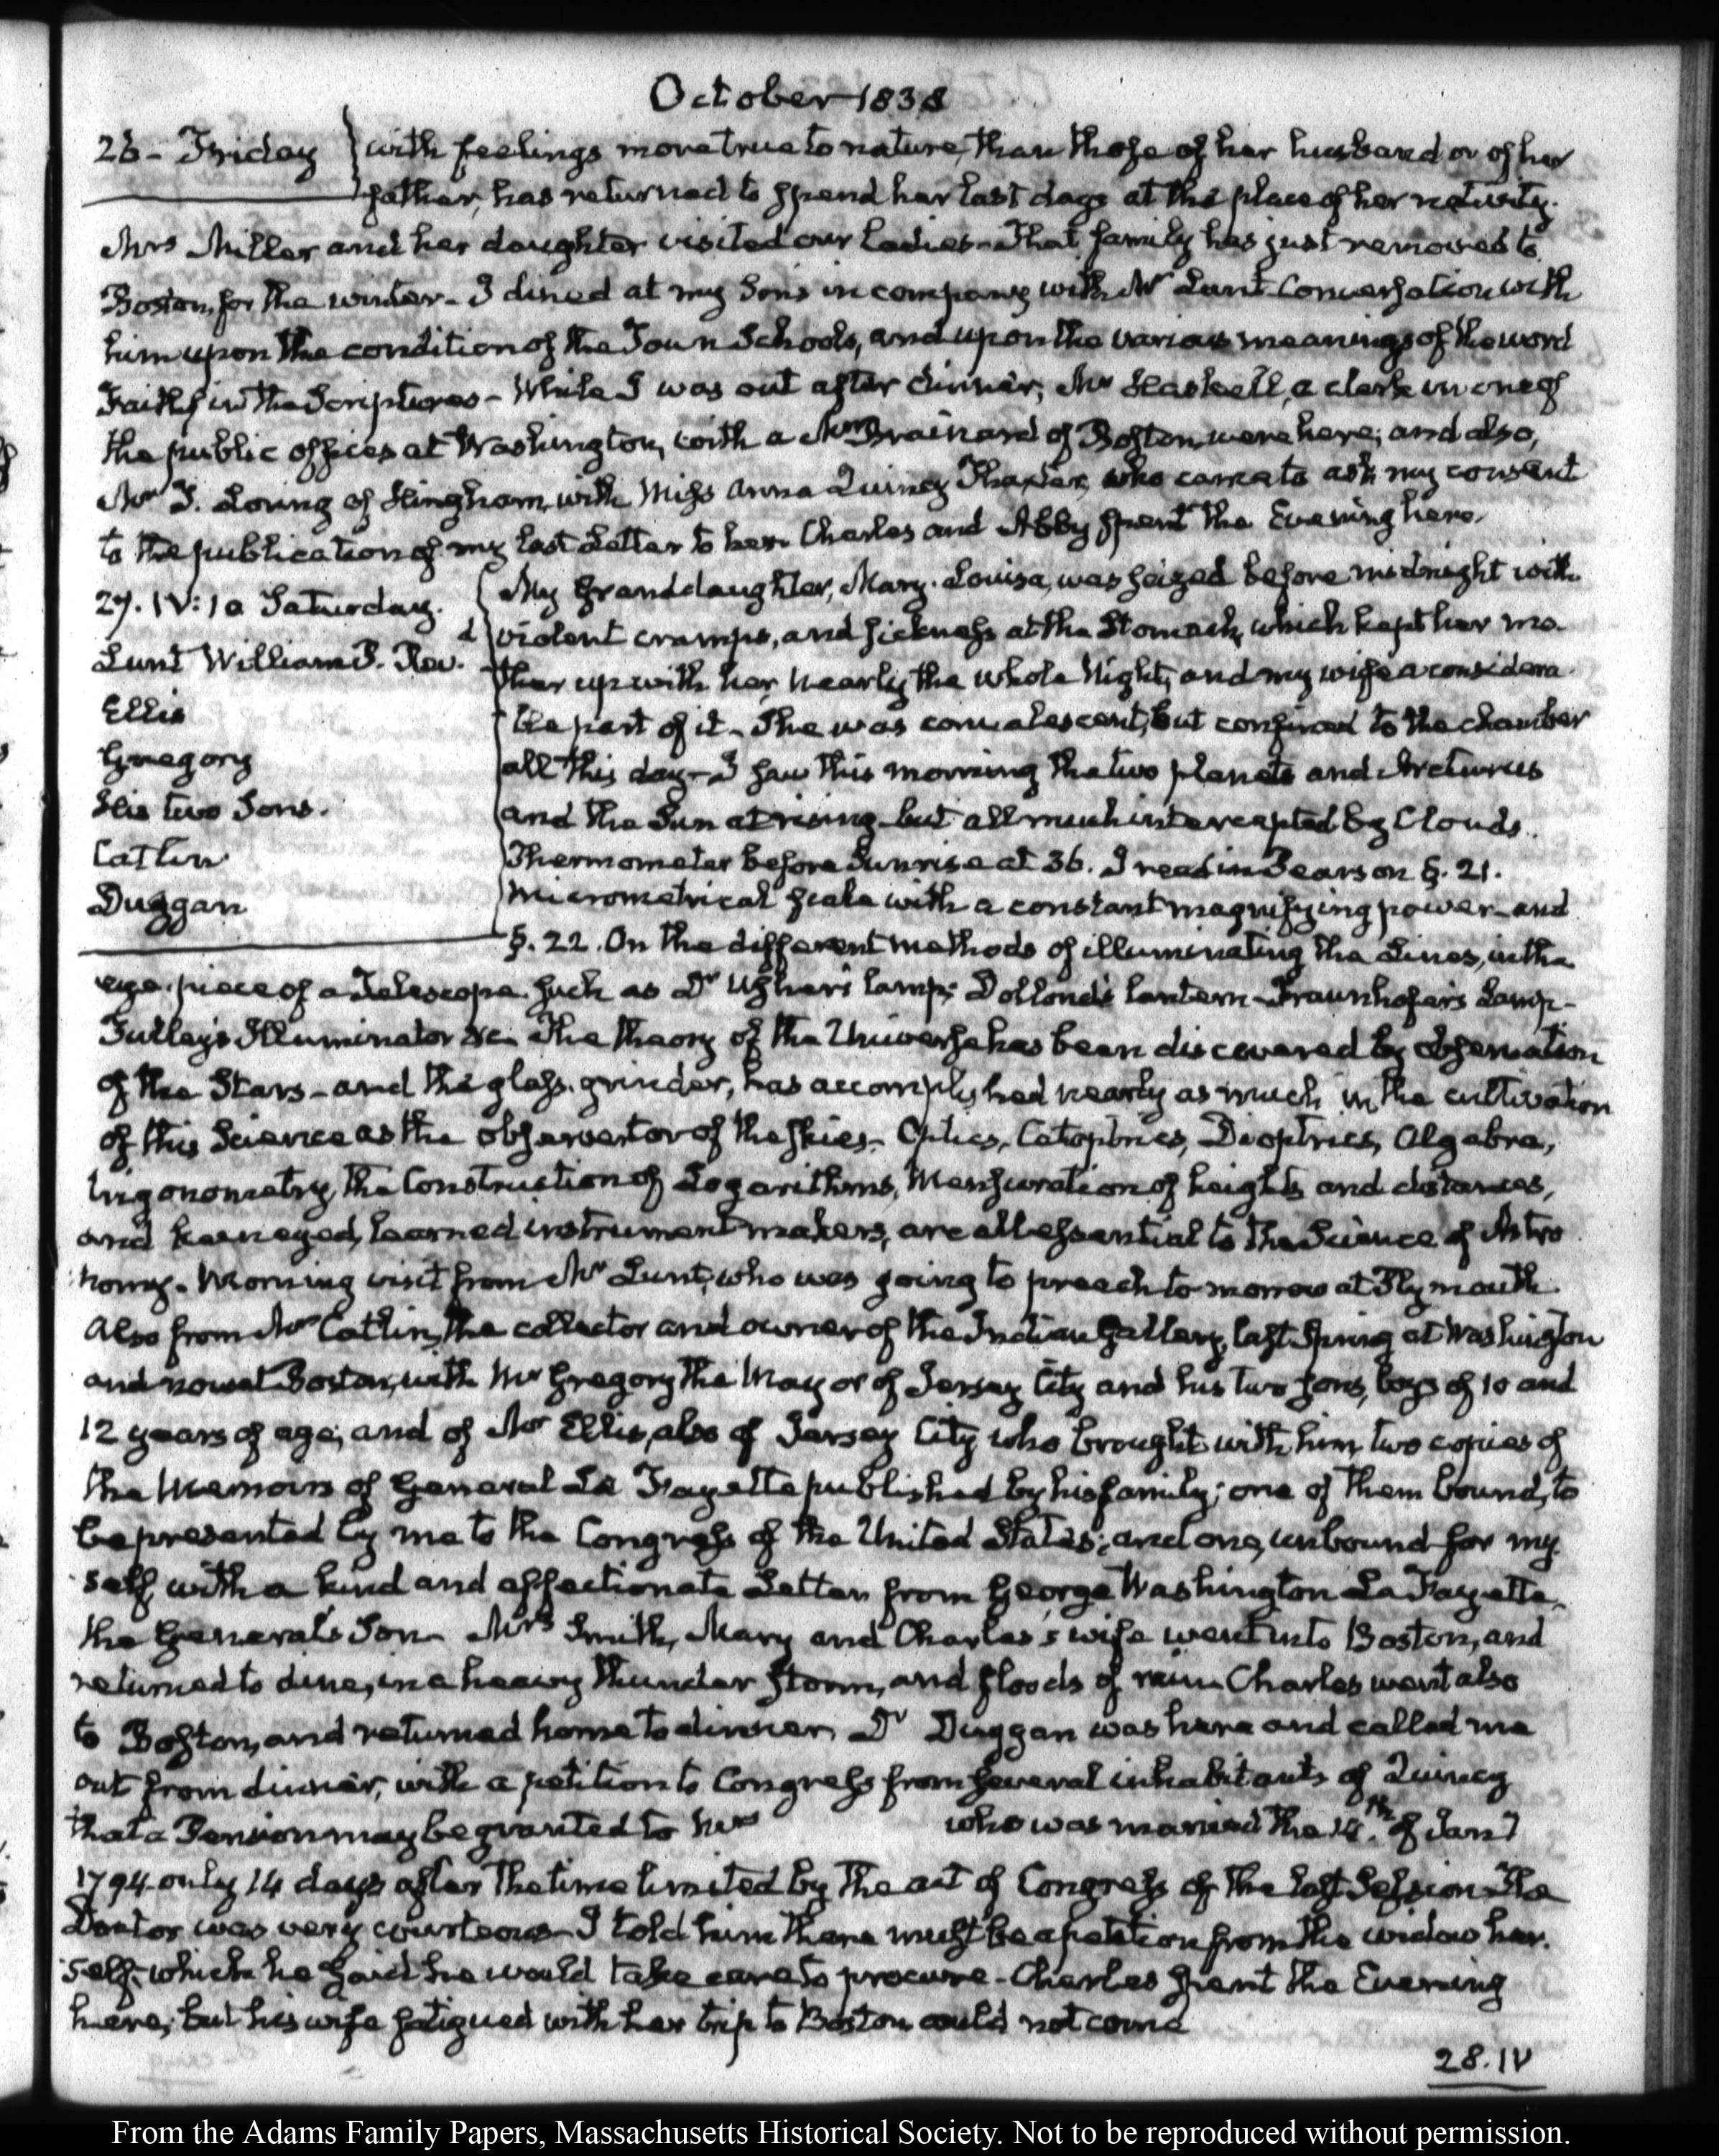 October 1838
26 - Friday
with feelings more true to nature, than those of her husband or of her
father, has returned to spend her last days at the place of her nativity.
Mrs Miller and her daughter visited our Ladies - That family has just removed to
Boston, for the winter - I dined at my Sons in company with Mr Lunt - Conversation with
him upon the condition of the Town Schools, and upon the various meanings of the word
Faith, in the Scriptures - While I was out after dinner, Mr Haskell, a clerk in one of
the public offices at Washington, with a Brainard of Boston, were here; and also,
Mr T. Loring of Hingham, with Miss Anna Quincy Thaxter, who came to ask my consent
to the publication of my last Letter to her. Charles and Abby spent the Evening here.
27. IV:10 Saturday.
Lunt William P. Rev. d
Ellis
Gregory
His two Sons.
Catlin
Duggan
My Granddaughter, Mary-Louisa, was seized before midnight with
violent cramps, and sickness at the Stomach, which kept her mo-
ther up with her, nearly the whole Night, and my wife a considera-
ble part of it - She was convalescent, but confined to the chamber
all this day - I saw this morning the two planets and Arcturus
and the Sun at rising - but all much intercepted by Clouds.
Thermometer before Sunrise at 36. I read in Pearson §. 21.
Micrometrical scale with a constant magnifying power - and
§. 22. On the different methods of illuminating the Lines, in the
eye-piece of a Telescope. Such as Dr Usher's lamp; Dollond's lantern - Fraunhofer's Lamp -
Tulley's Illuminator &c. The theory of the Universe has been discovered by observation
of the Stars - and the glass-grinder, has accomplished nearly as much in the cultivation
of this Science as the observator of the skies - Optics, Catoptrics, Dioptrics, Algebra,
trigonometry, the Construction of Logarithms, Mensuration of heights and distances,
and keen eyed, learned instrument makers, are all essential to the Science of Astro-
nomy - Morning visit from Mr Lunt, who was going to preach to-morrow at Plymouth
Also from Mr Catlin, the collector and owner of the Indian Gallery, last Spring at Washington
and now at Boston, with Mr Gregory the Mayor of Jersey City and his two sons, boys of 10 and
12 years of age, and of Mr Ellis, also of Jersey City who brought with him two copies of
the Memoirs of General La Fayette published by his family; one of them bound, to
be presented by me to the Congress of the United States; and one, unbound for my-
self, with a kind and affectionate Letter from George Washington La Fayette,
the General's Son - Mrs Smith, Mary and Charles's wife went into Boston, and
returned to dine, in a heavy thunder storm, and floods of rain. Charles went also
to Boston, and returned home to dinner. Dr Duggan was here and called me
out from dinner, with a petition to Congress from several inhabitants of Quincy
that a Pension may be granted to Mrs who was married the 14.th of Jany
1794 only 14 days after the time limited by the act of Congress of the last Session - The
Doctor was very courteous - I told him there must be a petition from the widow her-
self - which he said he would take care to procure - Charles spent the Evening
here, but his wife fatigued with her trip to Boston could not come
28. IV
From the Adams Family Papers, Massachusetts Historical Society. Not to be reproduced without permission.